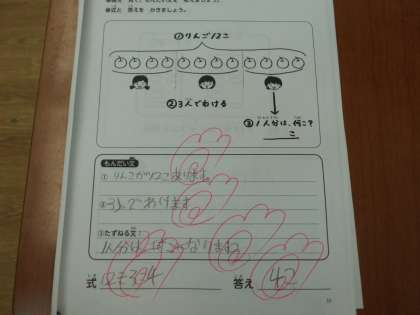 式と 答えを かきましょう。
①りんご12こ
②3人でわける
③1人分は、何こ?
こ
もんだい文
① りんごが12こあります。
②3人でわけます
③たずねる文
1人分は、なりますか
式 12÷3=4 答え 4こ